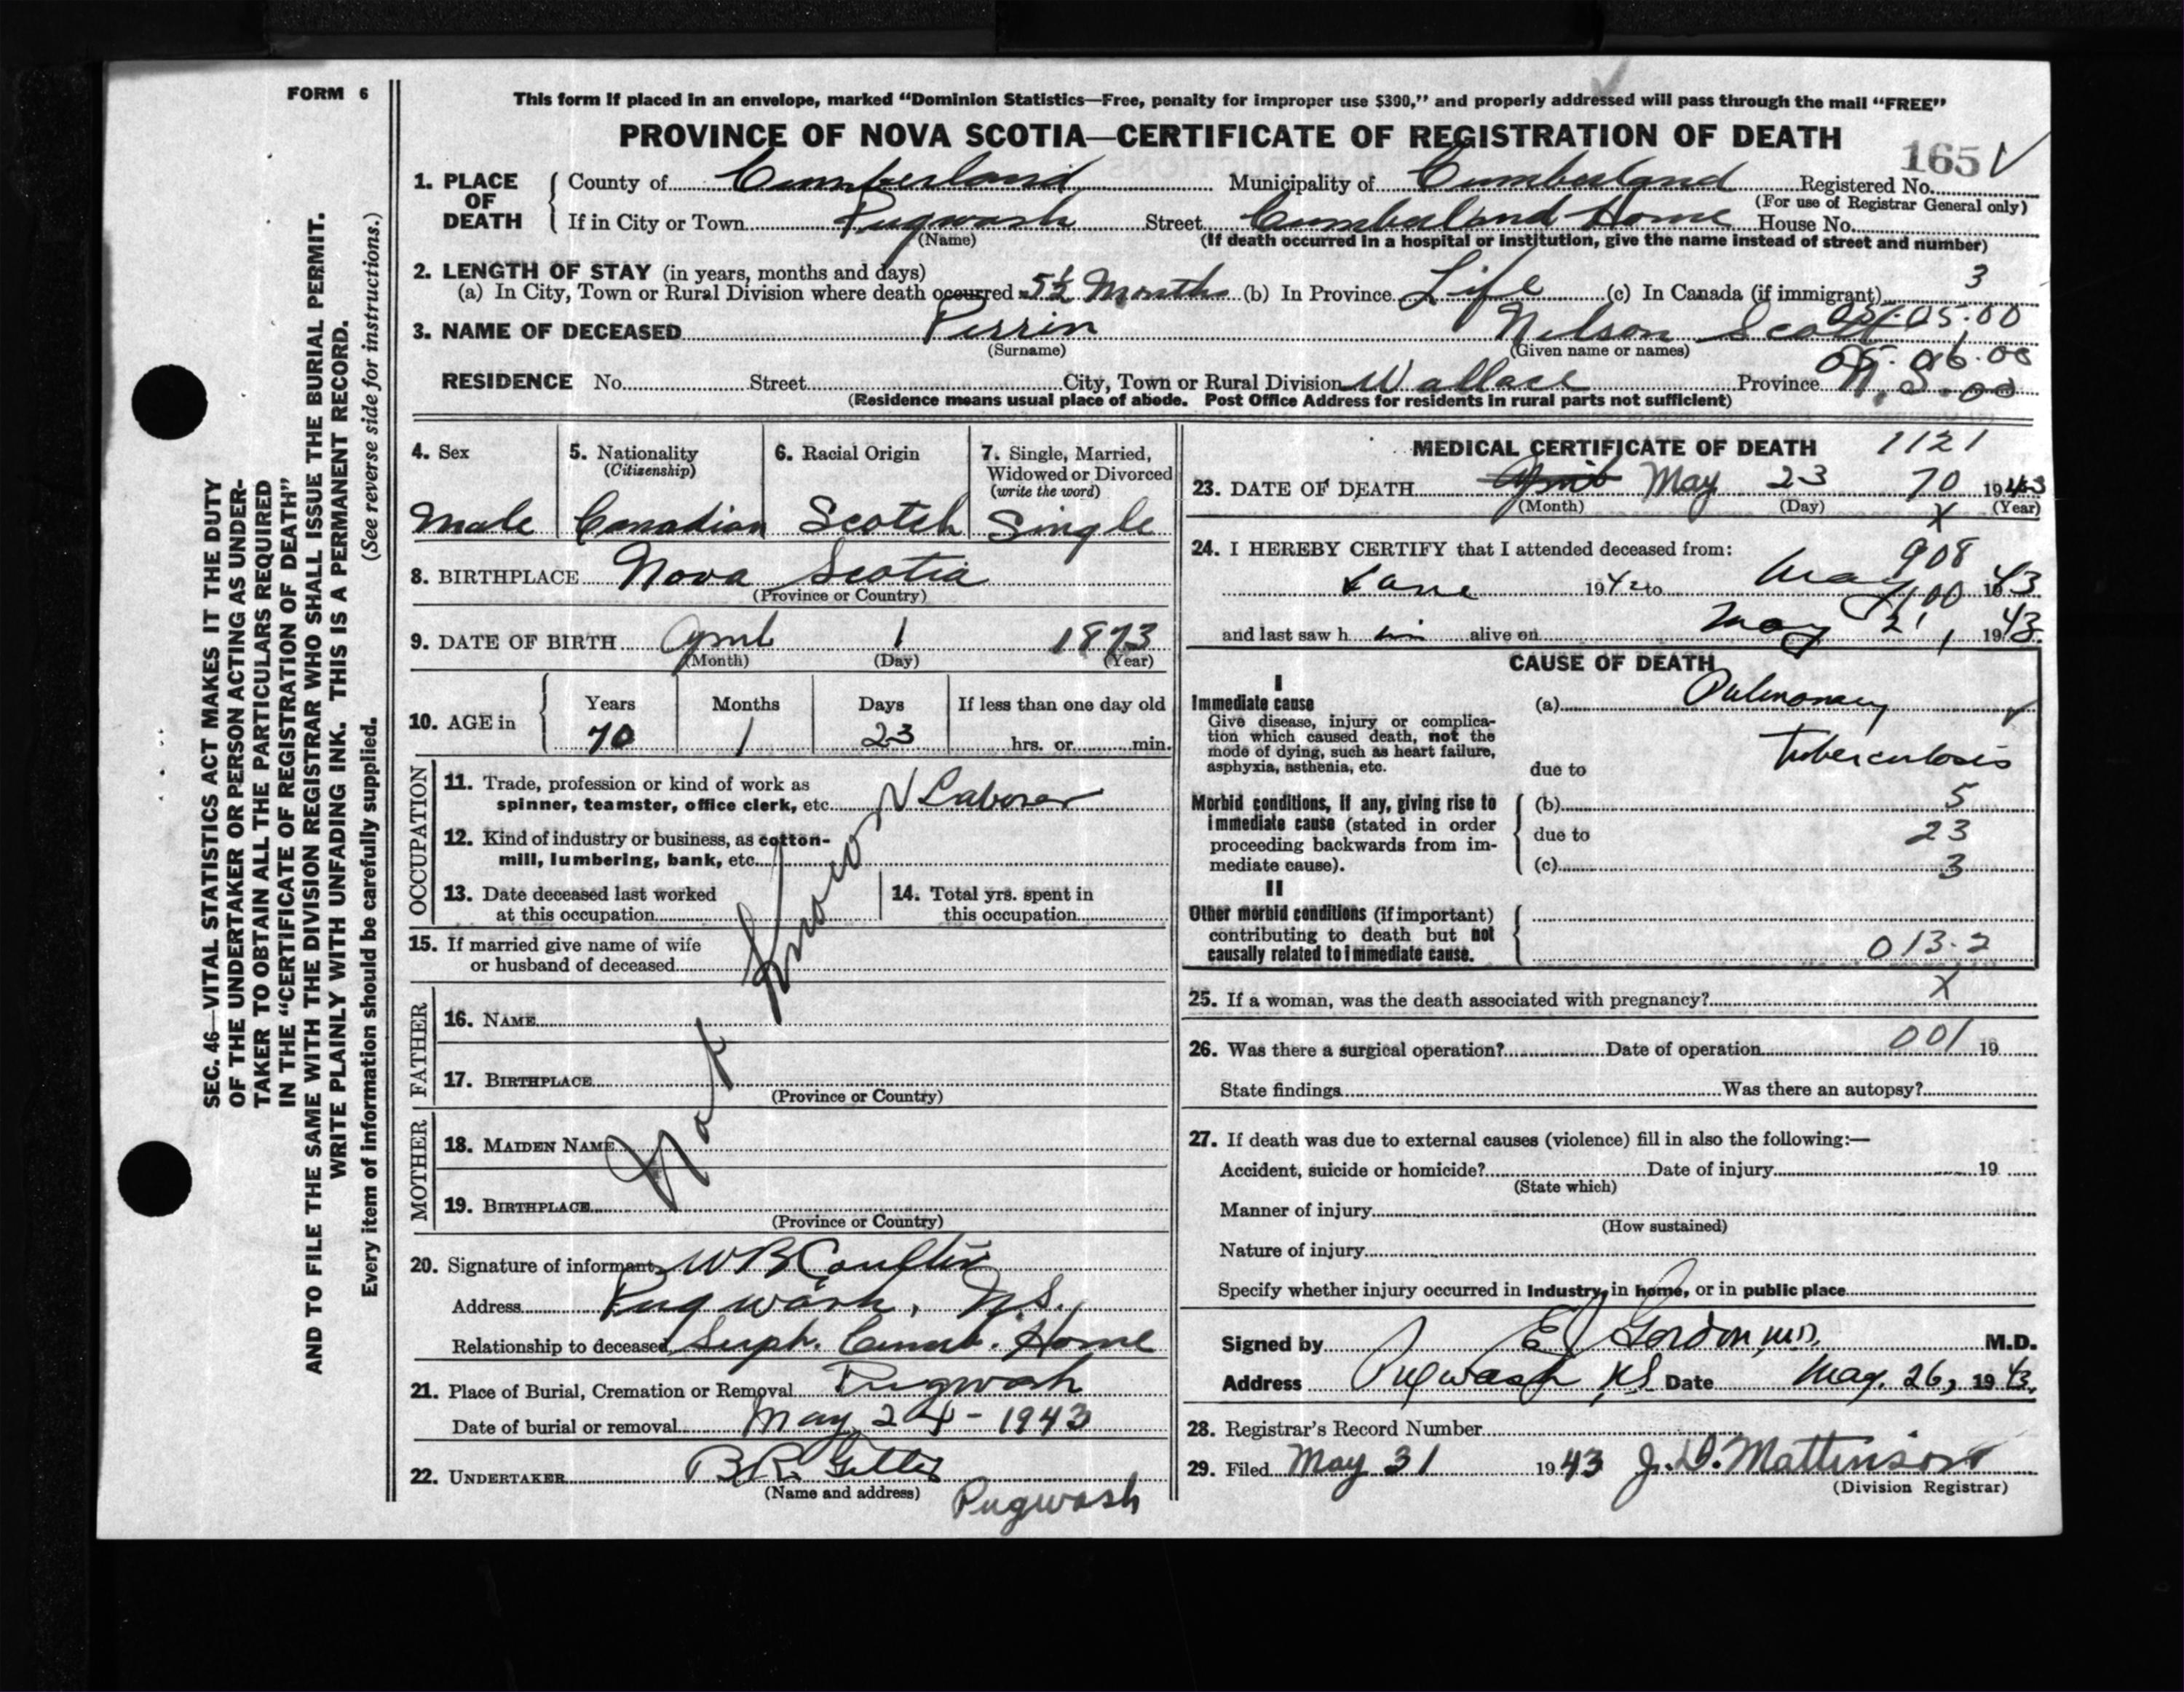 FORM 6
SEC. 46—VITAL STATISTICS ACT MAKES IT THE DUTY
OF THE UNDERTAKER OR PERSON ACTING AS UNDER-
TAKER TO OBTAIN ALL THE PARTICULARS REQUIRED
IN THE "CERTIFICATE OF REGISTRATION OF DEATH"
AND TO FILE THE SAME WITH THE DIVISION REGISTRAR WHO SHALL ISSUE THE BURIAL PERMIT.
WRITE PLAINLY WITH UNFADING INK. THIS IS A PERMANENT RECORD.
Every item of information should be carefully supplied. (See reverse side for instructions.)
This form if placed in an envelope, marked "Dominion Statistics—Free, penalty for improper use $300," and properly addressed will pass through the mail "FREE"
PROVINCE OF NOVA SCOTIA—CERTIFICATE OF REGISTRATION OF DEATH
165
1. PLACE OF DEATH County of Cumberland Municipality of Cumberland Registered No.
(For use of Registrar General only)
If in City or Town Pugwash Street Cumberland Home House No.
(Name) (If death occurred in a hospital or institution, give the name instead of street and number)
2. LENGTH OF STAY (in years, months and days) 3
(a) In City, Town or Rural Division where death occurred 5½ Months (b) In Province Life (c) In Canada (if immigrant)
3. NAME OF DECEASED Perrin Nelson Scott 05.00
(Surname) (Given name or names)
06.00
RESIDENCE No. Street City, Town or Rural Division Wallace Province N.S.
(Residence means usual place of abode. Post Office Address for residents in rural parts not sufficient)
4. Sex 5. Nationality 6. Racial Origin 7. Single, Married,
(Citizenship) Widowed or Divorced
(write the word)
Male Canadian Scotch Single
8. BIRTHPLACE Nova Scotia
(Province or Country)
9. DATE OF BIRTH April 1 1873
(Month) (Day) (Year)
10. AGE in Years Months Days If less than one day old
70 1 23 hrs. or min.
OCCUPATION
11. Trade, profession or kind of work as
spinner, teamster, office clerk, etc. Laborer
12. Kind of industry or business, as cotton-
mill, lumbering, bank, etc.
13. Date deceased last worked
at this occupation
14. Total yrs. spent in
this occupation
15. If married give name of wife
or husband of deceased
Not Known
FATHER
16. NAME
17. BIRTHPLACE
(Province or Country)
MOTHER
18. MAIDEN NAME
19. BIRTHPLACE
(Province or Country)
20. Signature of informant W B Coulter
Address Pugwash, N.S.
Relationship to deceased Supt. Cumb. Home
21. Place of Burial, Cremation or Removal Pugwash
Date of burial or removal May 24 - 1943
22. UNDERTAKER B R
(Name and address) Pugwash
MEDICAL CERTIFICATE OF DEATH 1121
23. DATE OF DEATH April May 23 70 1943
(Month) (Day) X (Year)
24. I HEREBY CERTIFY that I attended deceased from: 908
1942 to May 1943
and last saw him alive on May 21, 1943
CAUSE OF DEATH
I
Immediate cause (a) Pulmonary
Give disease, injury or complica-
tion which caused death, not the
mode of dying, such as heart failure,
asphyxia, asthenia, etc. due to tuberculosis
Morbid conditions, if any, giving rise to (b) 5
immediate cause (stated in order due to 23
proceeding backwards from im-
mediate cause). (c) 3
II
Other morbid conditions (if important)
contributing to death but not
causally related to immediate cause. 013.2
25. If a woman, was the death associated with pregnancy? X
26. Was there a surgical operation? Date of operation 001 19
State findings Was there an autopsy?
27. If death was due to external causes (violence) fill in also the following:—
Accident, suicide or homicide? Date of injury 19
(State which)
Manner of injury
(How sustained)
Nature of injury
Specify whether injury occurred in industry, in home, or in public place
Signed by E Gordon, M.D. M.D.
Address Pugwash NS Date May. 26, 1943.
28. Registrar's Record Number
29. Filed May 31 1943 J. D. Mattinson
(Division Registrar)